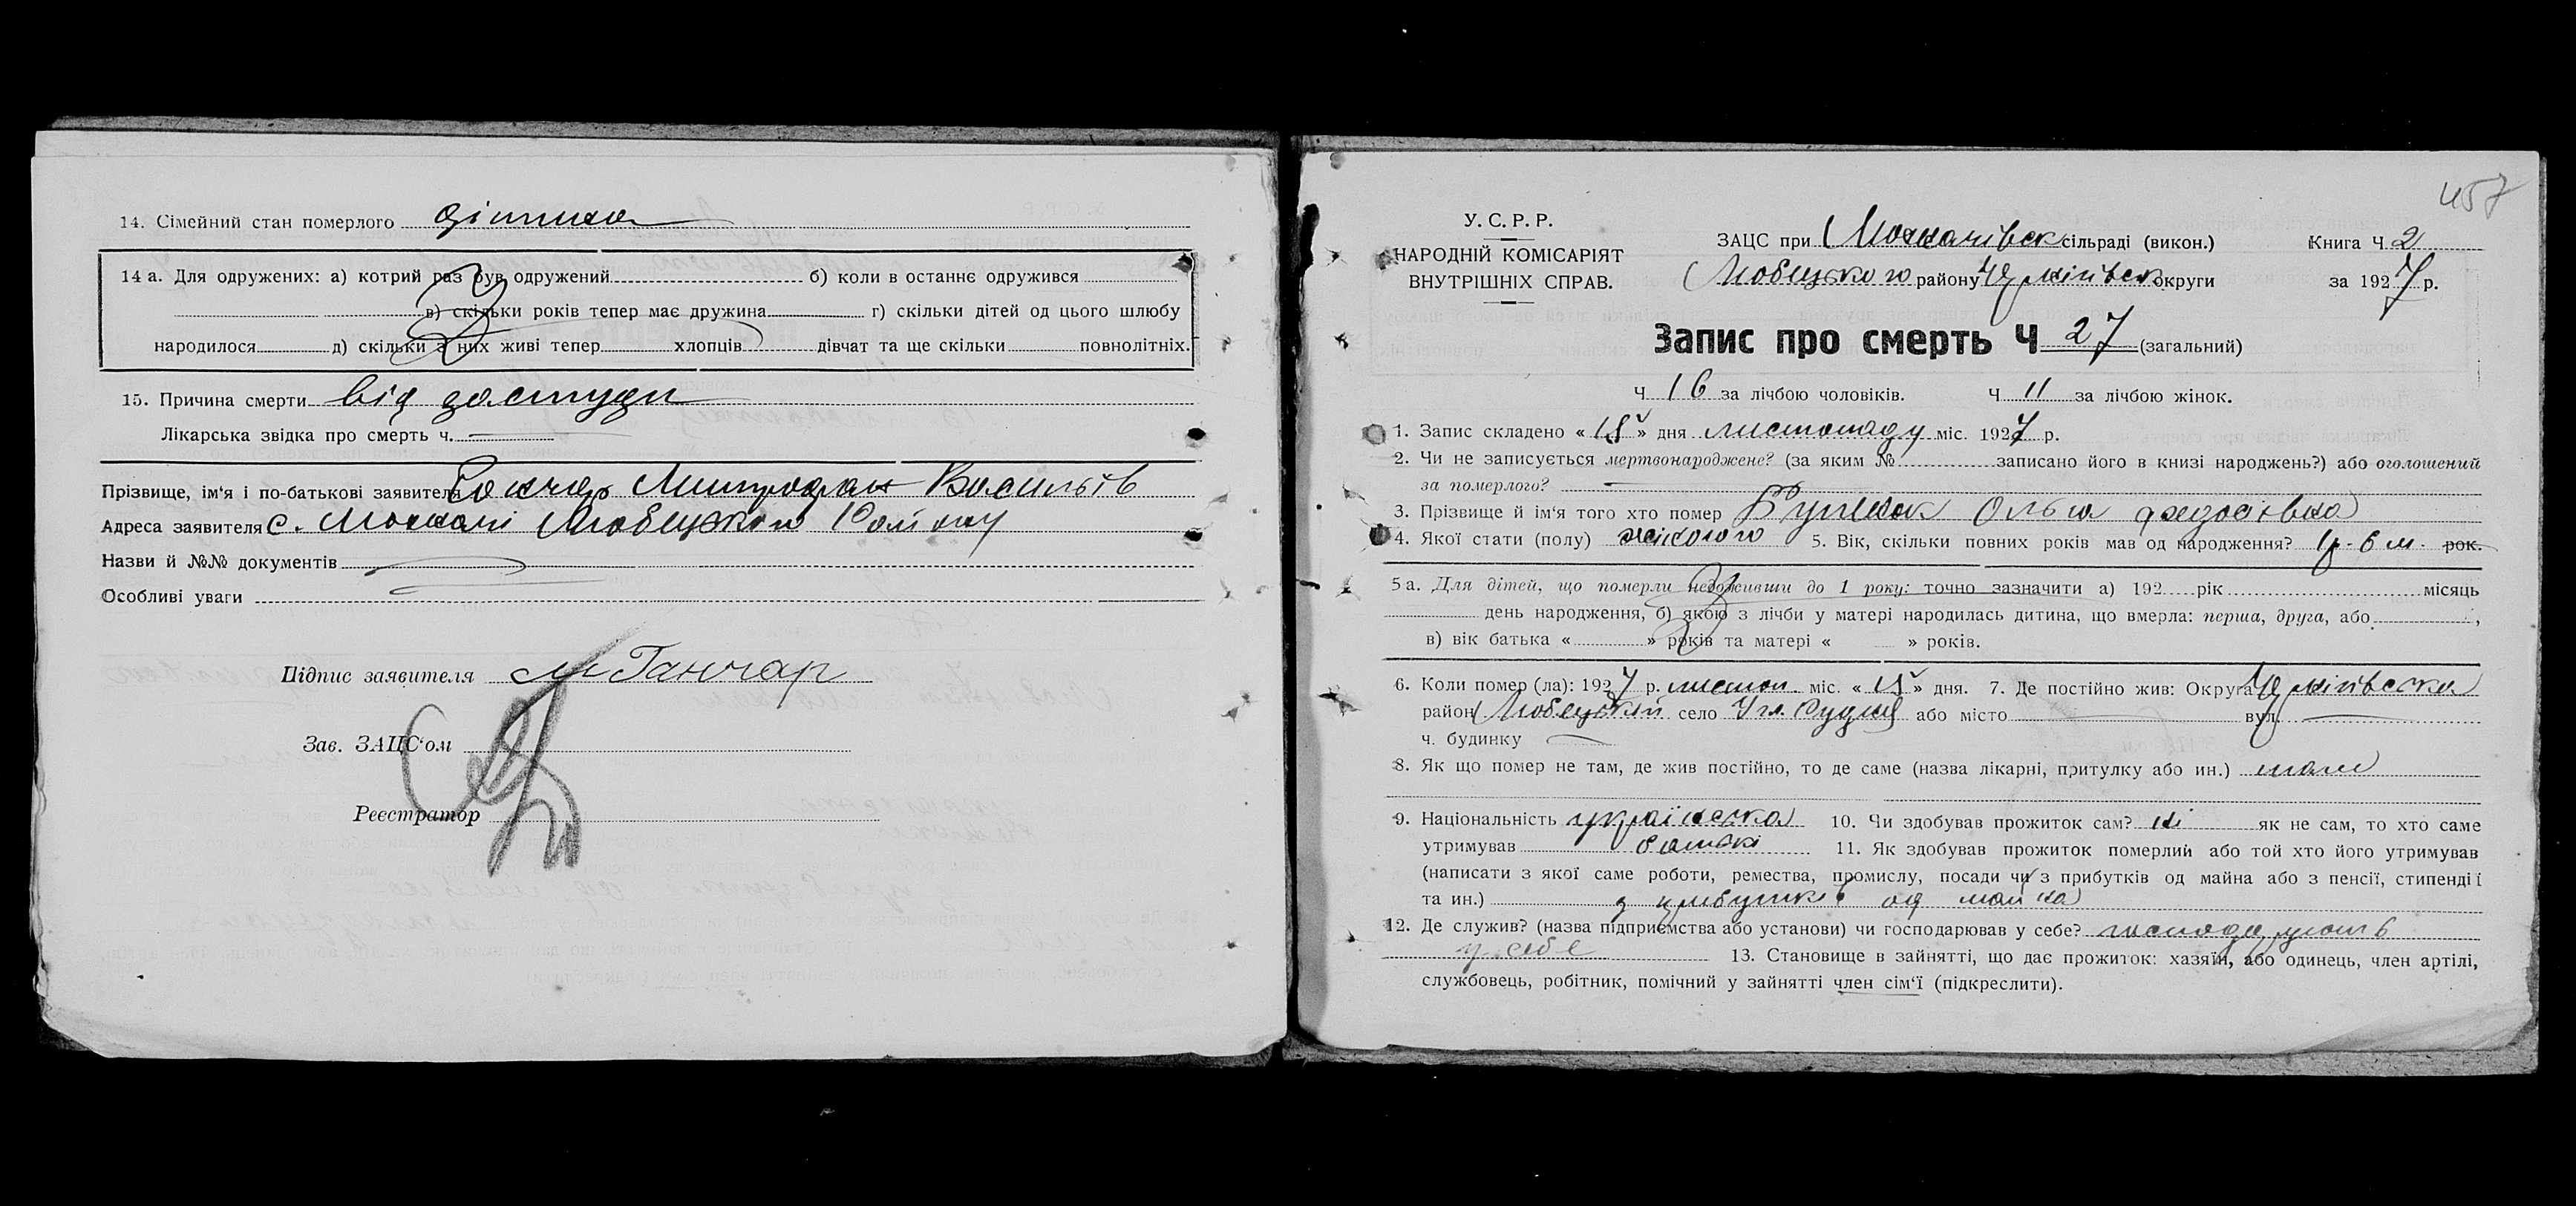 14. Сімейний стан померлого дитина
14 а. Для одружених: а) котрий раз був одружений б) коли в останнє одружився
в) скільки років тепер має дружина г) скільки дітей од цього шлюбу
народилося д) скільки з них живі тепер хлопців дівчат та ще скільки повнолітніх.
15. Причина смерти від застуди
Лікарська звідка про смерть ч.
Прізвище, ім'я і по-батькові заявителя Гончар Митрофан Васильів
Адреса заявителя с. Мохначі Любецького Району
Назви й №№ документів
Особливі уваги
Підпис заявителя М Ганчар
Зав. ЗАЦС'ом
Реєстратор
457
У.С.Р.Р.
НАРОДНІЙ КОМІСАРІЯТ
ВНУТРІШНІХ СПРАВ.
ЗАЦС при Мохначівск сільраді (викон.) Книга Ч. 2
Любецького району Чернігівск округи за 1927 р.
Запис про смерть Ч 27 (загальний)
Ч 16 за лічбою чоловіків. Ч 11 за лічбою жінок.
1. Запис складено « » дня листопаду міс. 1927 р.
2. Чи не записується мертвонароджене? (за яким № записано його в книзі народжень?) або оголошений
за померлого?
3. Прізвище й ім'я того хто помер Ольга Федосівна
4. Якої стати (полу) жіночого 5. Вік, скільки повних років мав од народження? 1 р. 6 м. рок.
5 а. Для дітей, що померли недоживши до 1 року: точно зазначити а) 192 рік місяць
день народження, б) якою з лічби у матері народилась дитина, що вмерла: перша, друга, або ,
в) вік батька « » років та матері « » років.
6. Коли помер (ла): 1927 р. листоп. міс. « » дня. 7. Де постійно жив: Округа Чернігівська
район Любецький село Угл. Рудня або місто вул.
ч. будинку
8. Як що помер не там, де жив постійно, то де саме (назва лікарні, притулку або ин.) там
9. Національність українська 10. Чи здобував прожиток сам? ні як не сам, то хто саме
утримував батькі 11. Як здобував прожиток померлий або той хто його утримував
(написати з якої саме роботи, ремества, промислу, посади чи з прибутків од майна або з пенсії, стипендії
та ин.) з прибутків од майна
12. Де служив? (назва підприємства або установи) чи господарював у себе? господарюють
у себе 13. Становище в зайнятті, що дає прожиток: хазяїн, або одинець, член артілі,
службовець, робітник, помічний у зайнятті член сім'ї (підкреслити).